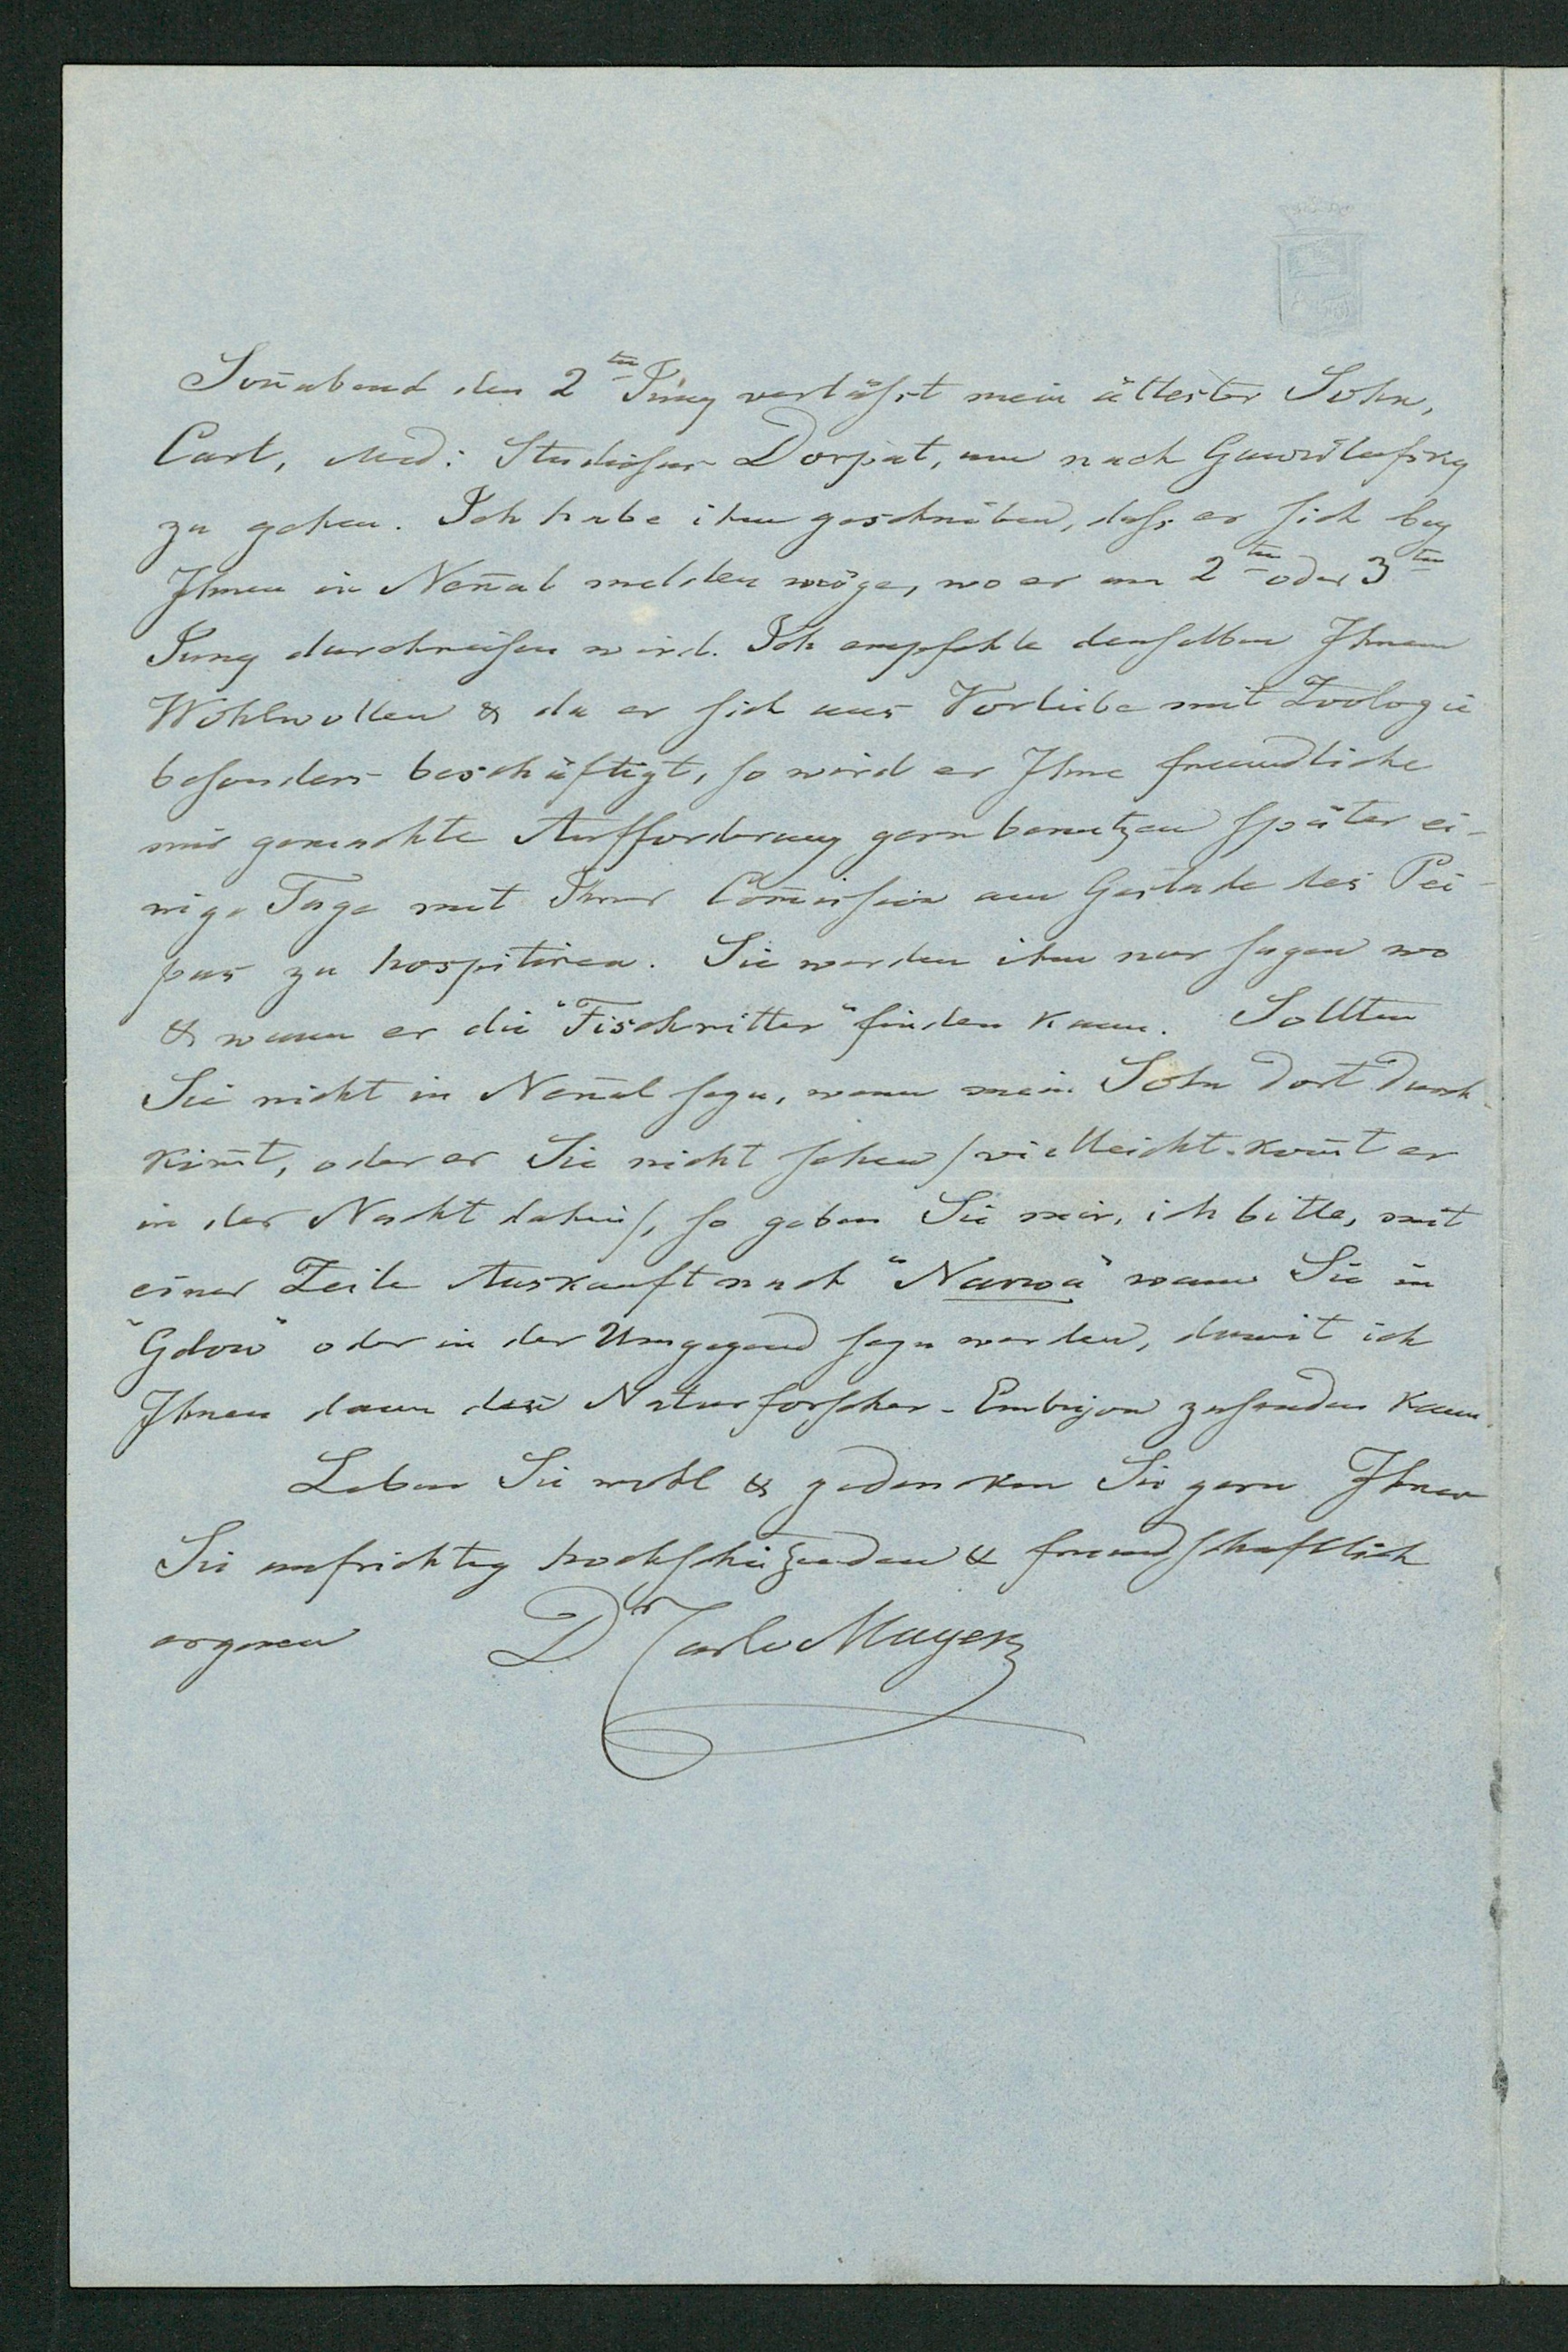 Son̄abend den 2ten Juny verläſst mein ältester Sohn,
Carl, Med: Studiosus Dorpat, um nach Gawrilofsky
zu gehen. Ich habe ihm geschrieben, daſs er sich bey
Ihnen in Nen̄al melden möge, wo er am 2ten oder 3ten
Juny durchreisen wird. Ich empfehle denselben Ihrem
Wohlwollen & da er sich aus Vorliebe mit Zoologie
besonders beschäftigt, so wird er Ihre freundliche
mir gemachte Aufforderung gern benutzen später ei-
nige Tage mit Ihrer Com̄ission am Gestade des Pei-
pus zu hospitiren. Sie werden ihm nur sagen wo
& wann er die "Fischritter" finden kann. Sollten
Sie nicht in Nen̄al seyn, wenn mein Sohn dort durch-
kom̄t, oder er Sie nicht sehen /vielleicht kom̄t er
in der Nacht dahin/, so geben Sie mir, ich bitte, mit
einer Zeile Auskunft nach "Narwa" wann Sie in
"Gdow" oder in der Umgegend seyn werden, damit ich
Ihnen dann den Naturforscher-Embryon zusenden kann.
Leben Sie wohl & gedenken Sie gern Ihres
Sie aufrichtig hochschätzenden & freundschaftlich
ergebenen Dr Carlv Mayer